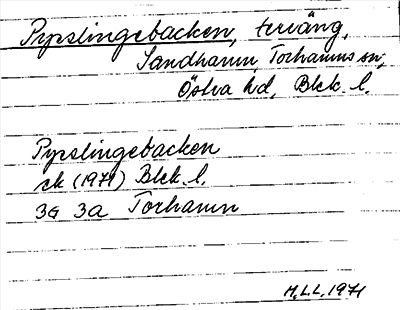 Pyrslingebacken, terräng,
Sandhamn, Torhamns sn,
Östra hd, Blek. l.
Pyrslingebacken
ek (1971) Blek. l.
3G 3a Torhamn
M.L.L. 1971